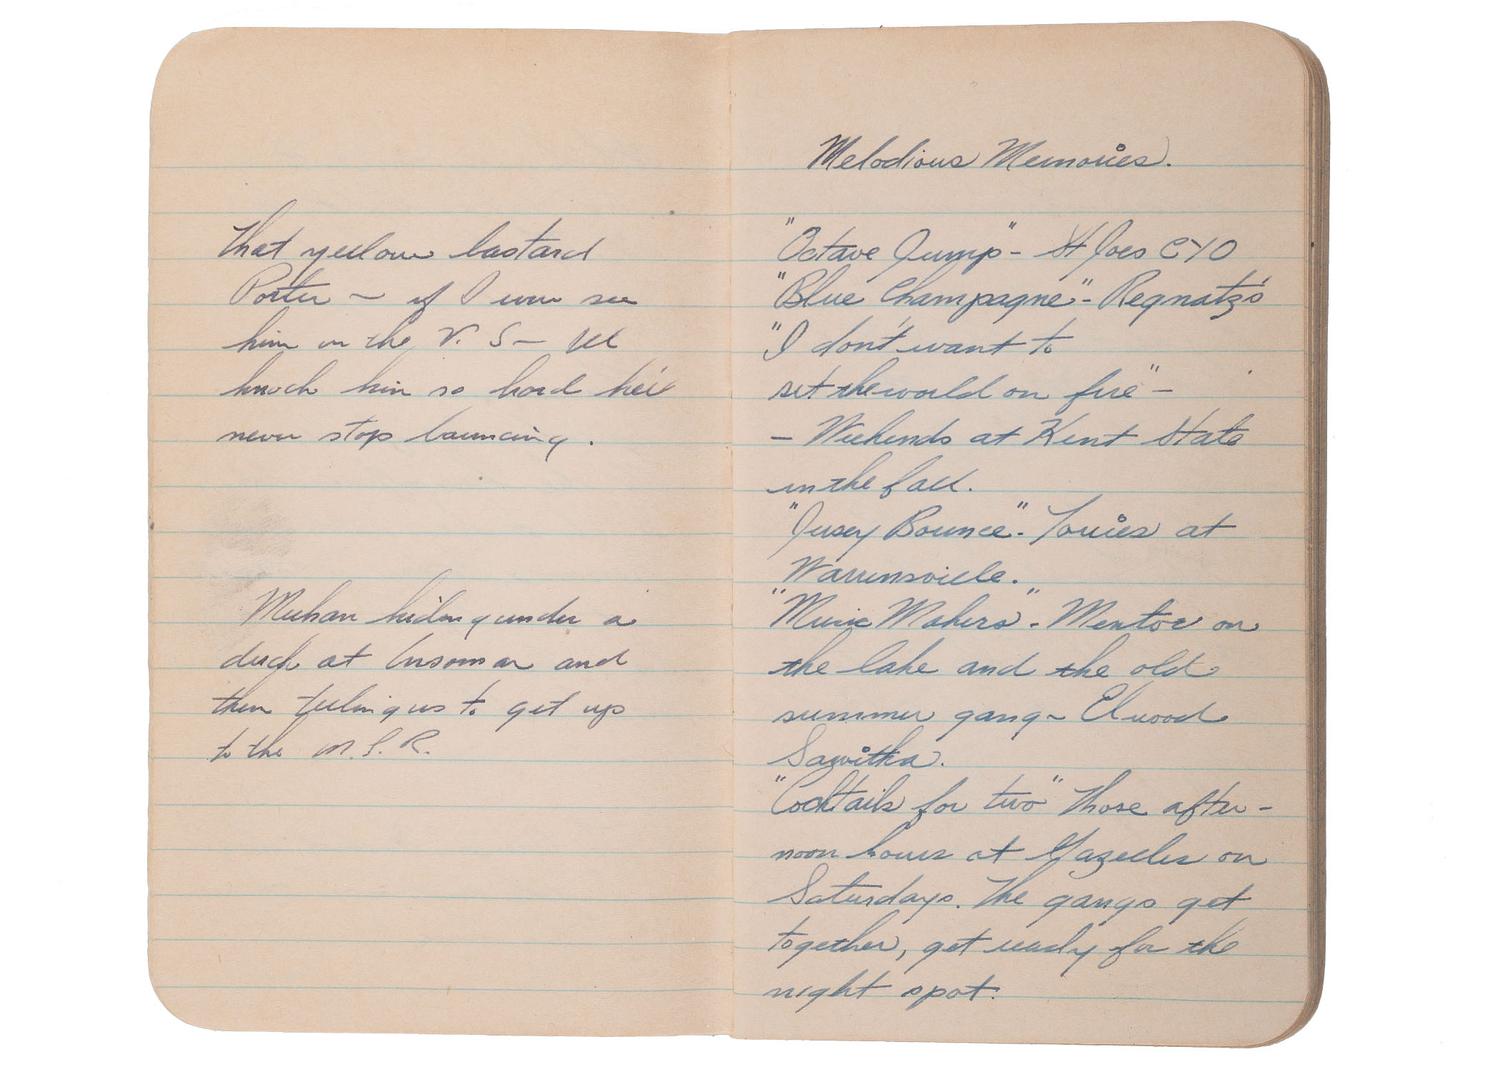 that yellow bastard
Porter - if I ever see
him in the V. S - Ill
knock him so hard he'll
never stop bouncing.
Meehan hiding under a
deck at and
then feeling us to get up
to the M.S.R.
Melodious Memories.
"Octave Jump" - St Joes CYO
"Blue Champagne" - Regnatz's
"I don't want to
set the world on fire" -
- Weekends at Kent State
in the fall.
"Jersey Bounce". Tonies at
Warrensville.
"Music Makers". Mentor on
the lake and the old
summer gang - Elwood
Sawitka.
"Cocktails for two" Those after-
noon hours at Gazelles on
Saturdays. The gangs get
together, get ready for the
night spot.